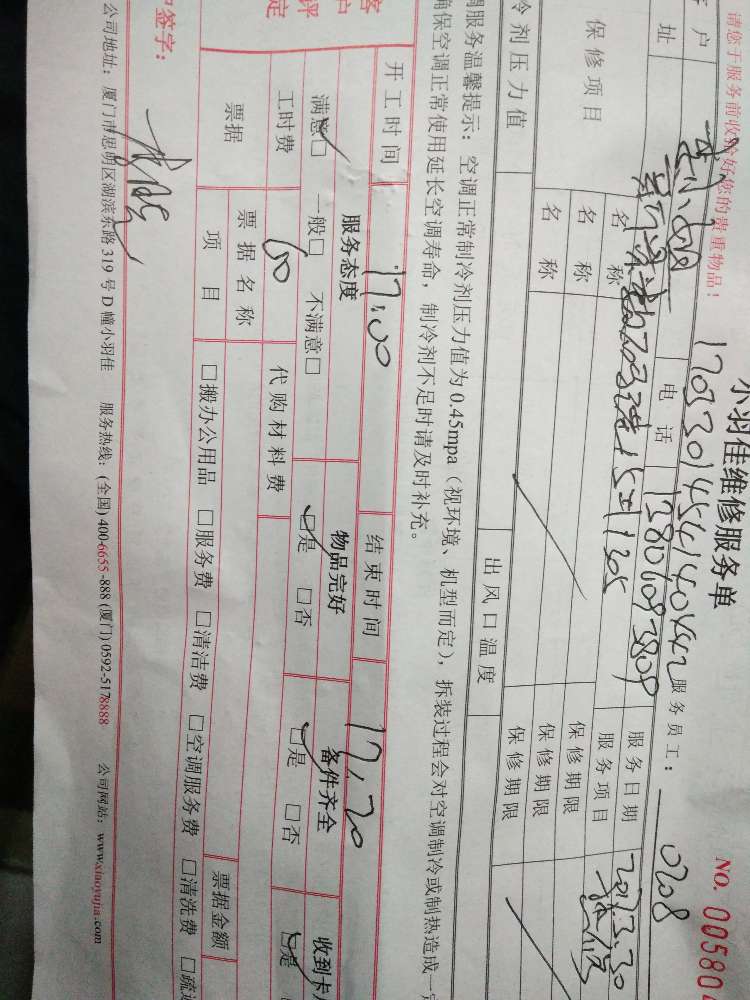 小羽佳维修服务单
NO. 00580
请您于服务前收拾好您的贵重物品！
服务员工： 0208
户
电话
服务日期 2017.3.30
址
服务项目
保修项目 名称 保修期限
名称 保修期限
名称 保修期限
冷剂压力值 出风口温度
调服务温馨提示： 空调正常制冷剂压力值为0.45mpa（视环境、机型而定），拆装过程会对空调制冷或制热造成一定
确保空调正常使用延长空调寿命，制冷剂不足时请及时补充。
开工时间 17:00 结束时间 17:20
客户评定
服务态度 物品完好 备件齐全 收到卡
满意□ 一般□ 不满意□ □是 □否 □是 □否 □是
工时费 60 代购材料费
票据 票据名称 票据金额
项目 □搬办公用品 □服务费 □清洁费 □空调服务费 □清洗费 □疏通
户签字：
公司地址：厦门市思明区湖滨东路319号D幢小羽佳 服务热线：(全国) 400-6655-888 (厦门) 0592-5178888 公司网站：www.xiaoyujia.com